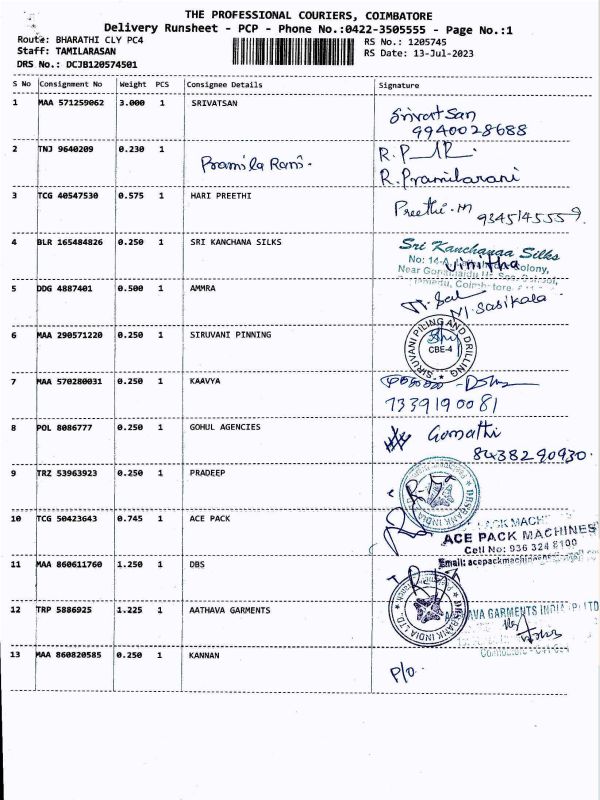 THE PROFESSIONAL COURIERS, COIMBATORE
Delivery Runsheet - PCP - Phone No.:0422-3505555 - Page No.:1
Route: BHARATHI CLY PC4 RS No.: 1205745
Staff: TAMILARASAN RS Date: 13-Jul-2023
DRS No.: DCJB120574501
S No Consignment No Weight PCS Consignee Details Signature
1 MAA 571259062 3.000 1 SRIVATSAN Srivatsan
9940028688
2 TNJ 9640209 0.230 1 Pramila Rani. R.P
R. Pramilarani
3 TCG 40547530 0.575 1 HARI PREETHI Preethi.M 9345145559.
4 BLR 165484826 0.250 1 SRI KANCHANA SILKS Sri Kanchanaa Silks
No: 14-A Vinitha Colony,
Near
5 DDG 4887401 0.500 1 AMMRA
M. Sasikala
6 MAA 290571220 0.250 1 SIRUVANI PINNING SIRUVANI PILING AND DRILLING
CBE-4
7 MAA 570280031 0.250 1 KAAVYA
7339190081
8 POL 8086777 0.250 1 GOHUL AGENCIES Gomathi
8438290930.
9 TRZ 53963923 0.250 1 PRADEEP DBS BANK INDIA
10 TCG 50423643 0.745 1 ACE PACK ACE PACK MACHINES
Cell No: 936 324 8100
11 MAA 860611760 1.250 1 DBS Email:
DBS BANK INDIA LTD.
12 TRP 5886925 1.225 1 AATHAVA GARMENTS GARMENTS INDIA (P) LTD
13 MAA 860820585 0.250 1 KANNAN P/O.